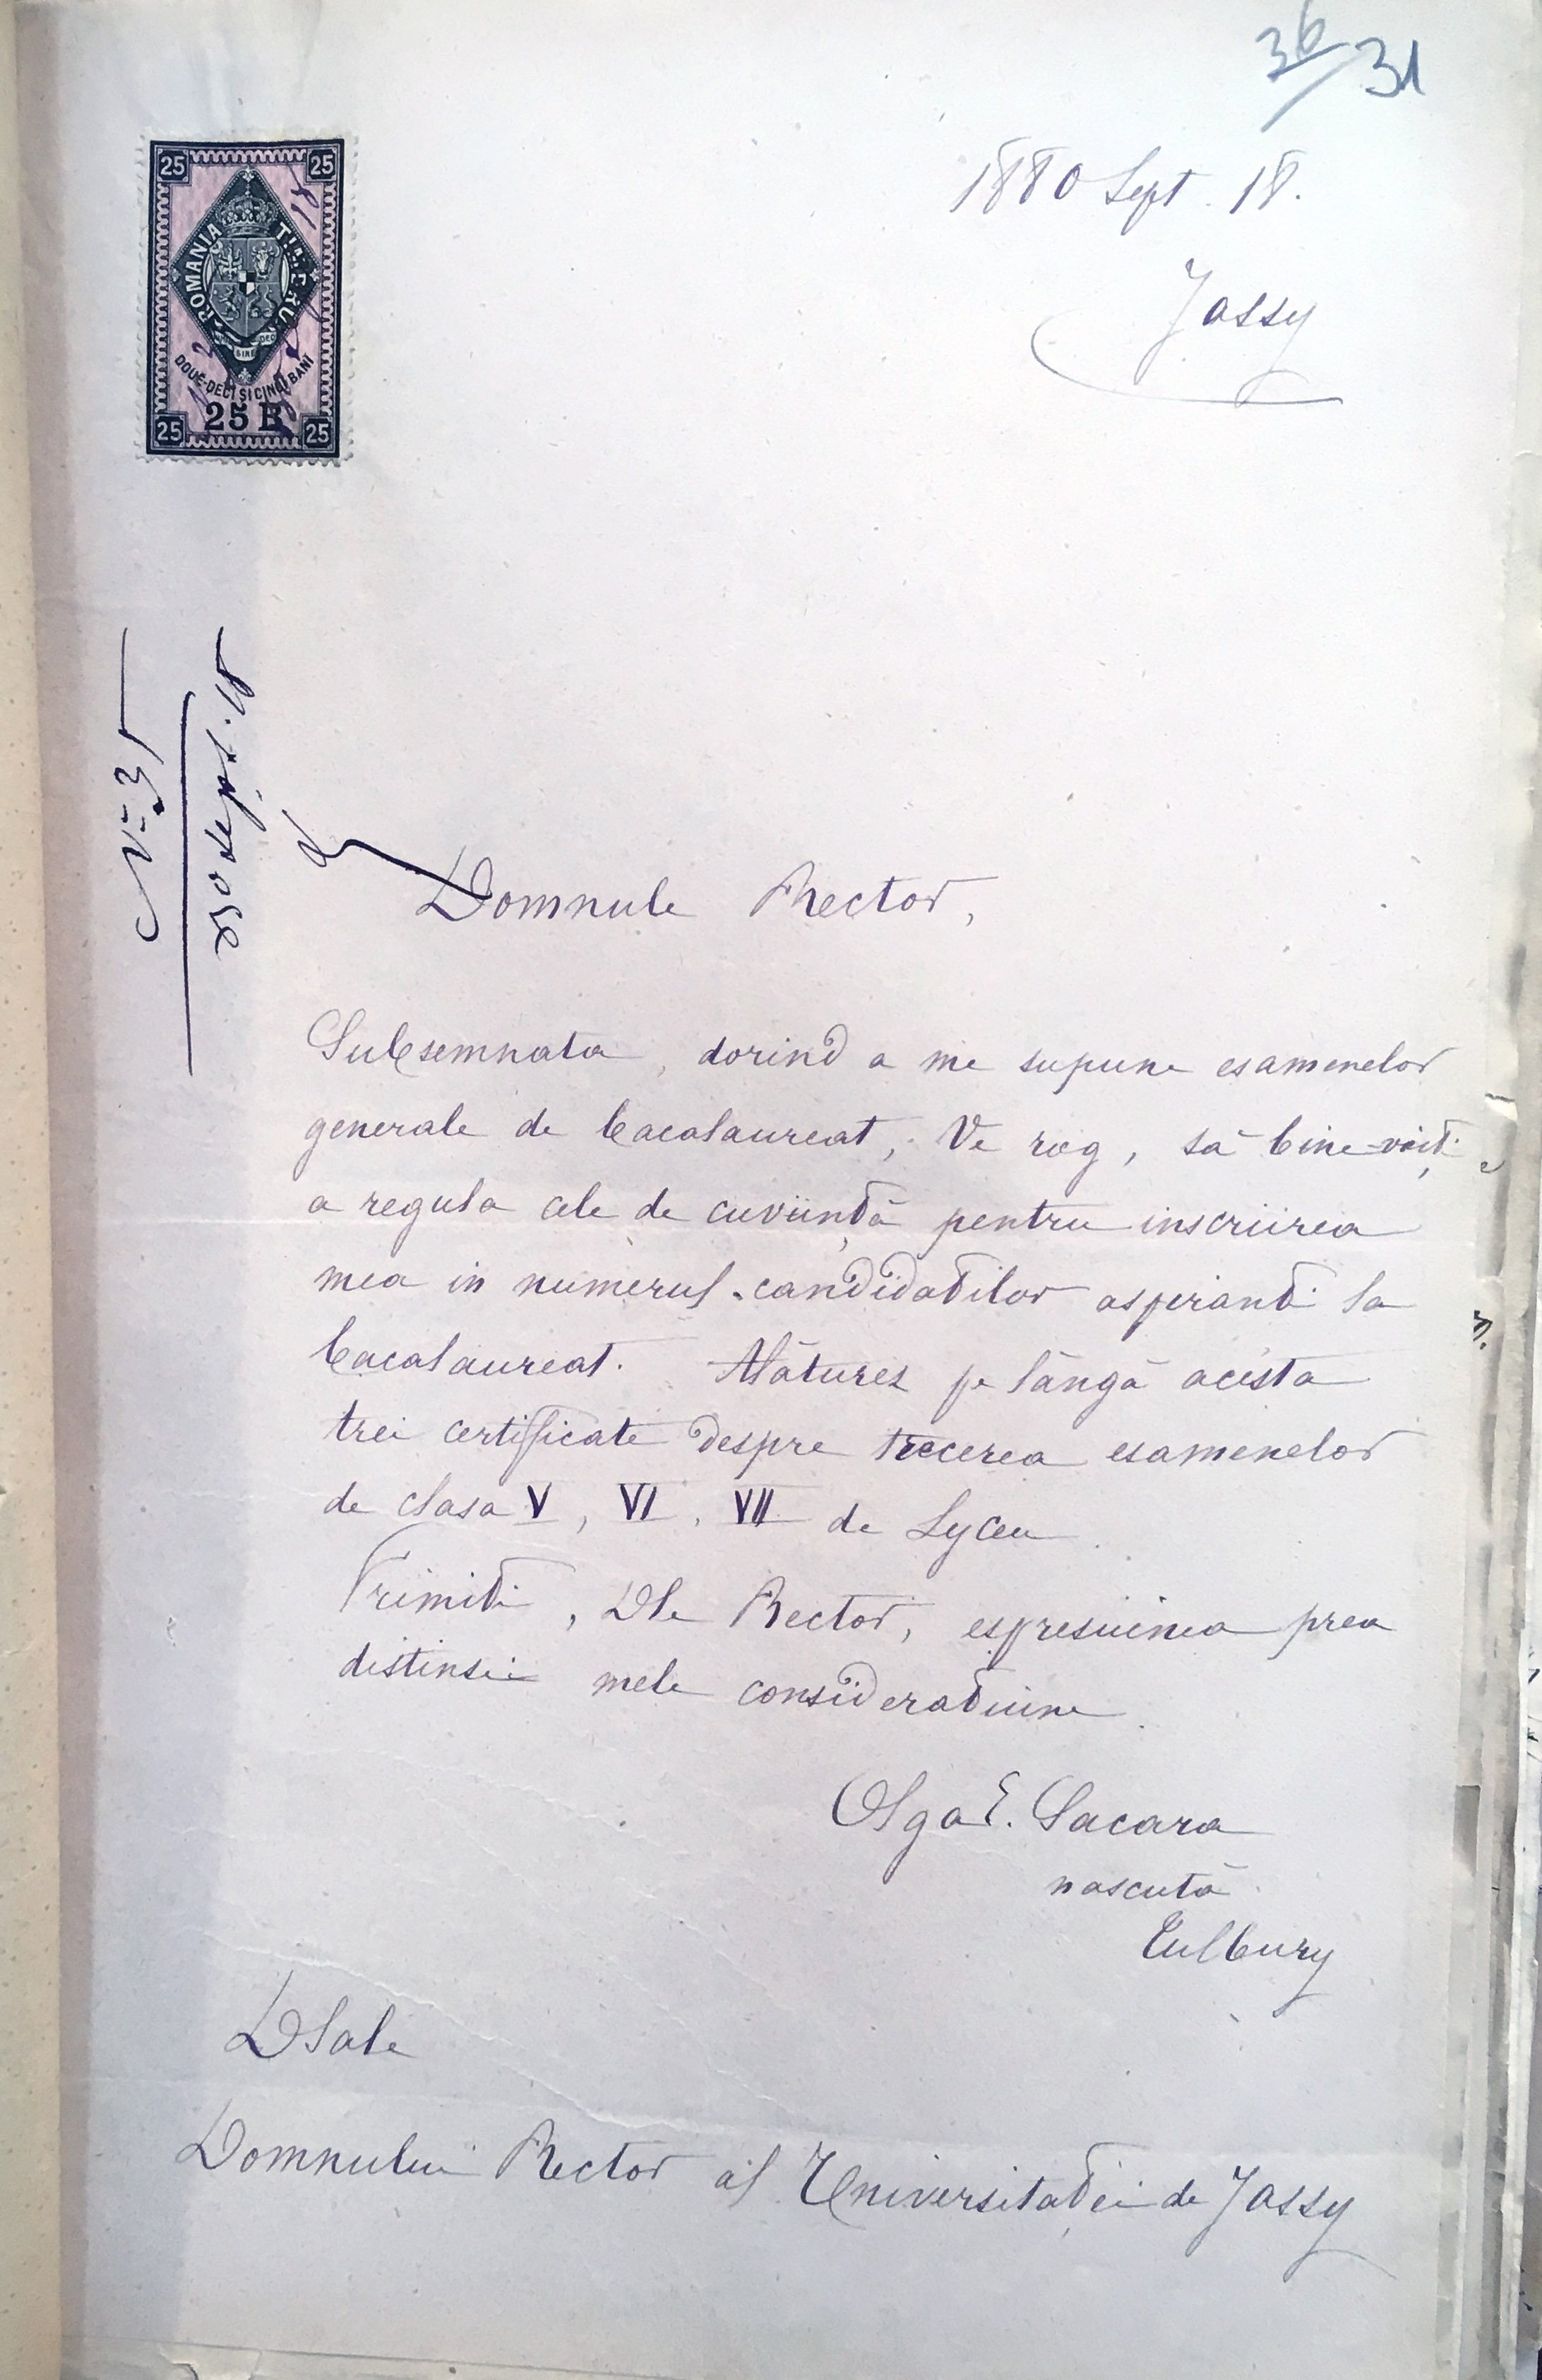 36/31
1880 Sept. 18.
Jassy
25 25
ROMANIA TIMBRU
DOUE-DECI SI CINCI BANI
25 B
25 25
No 35
80 sept. 18
Domnule Rector,
Subsemnata, dorind a me supune esamenelor
generale de bacalaureat, Ve rog, să bine-voiți
a regula cele de cuviință pentru inscriirea
mea in numerul candidaților aspiranți la
bacalaureat. Alăturez pe lângă acesta
trei certificate despre trecerea esamenelor
de clasa V, VI, VII de Lyceu.
Primiți, Dle Rector, espresiunea prea
distinsei mele considerațiune.
Olga E. Sacara
nascută
Eulbury
DSale
Domnului Rector al Universităței de Jassy